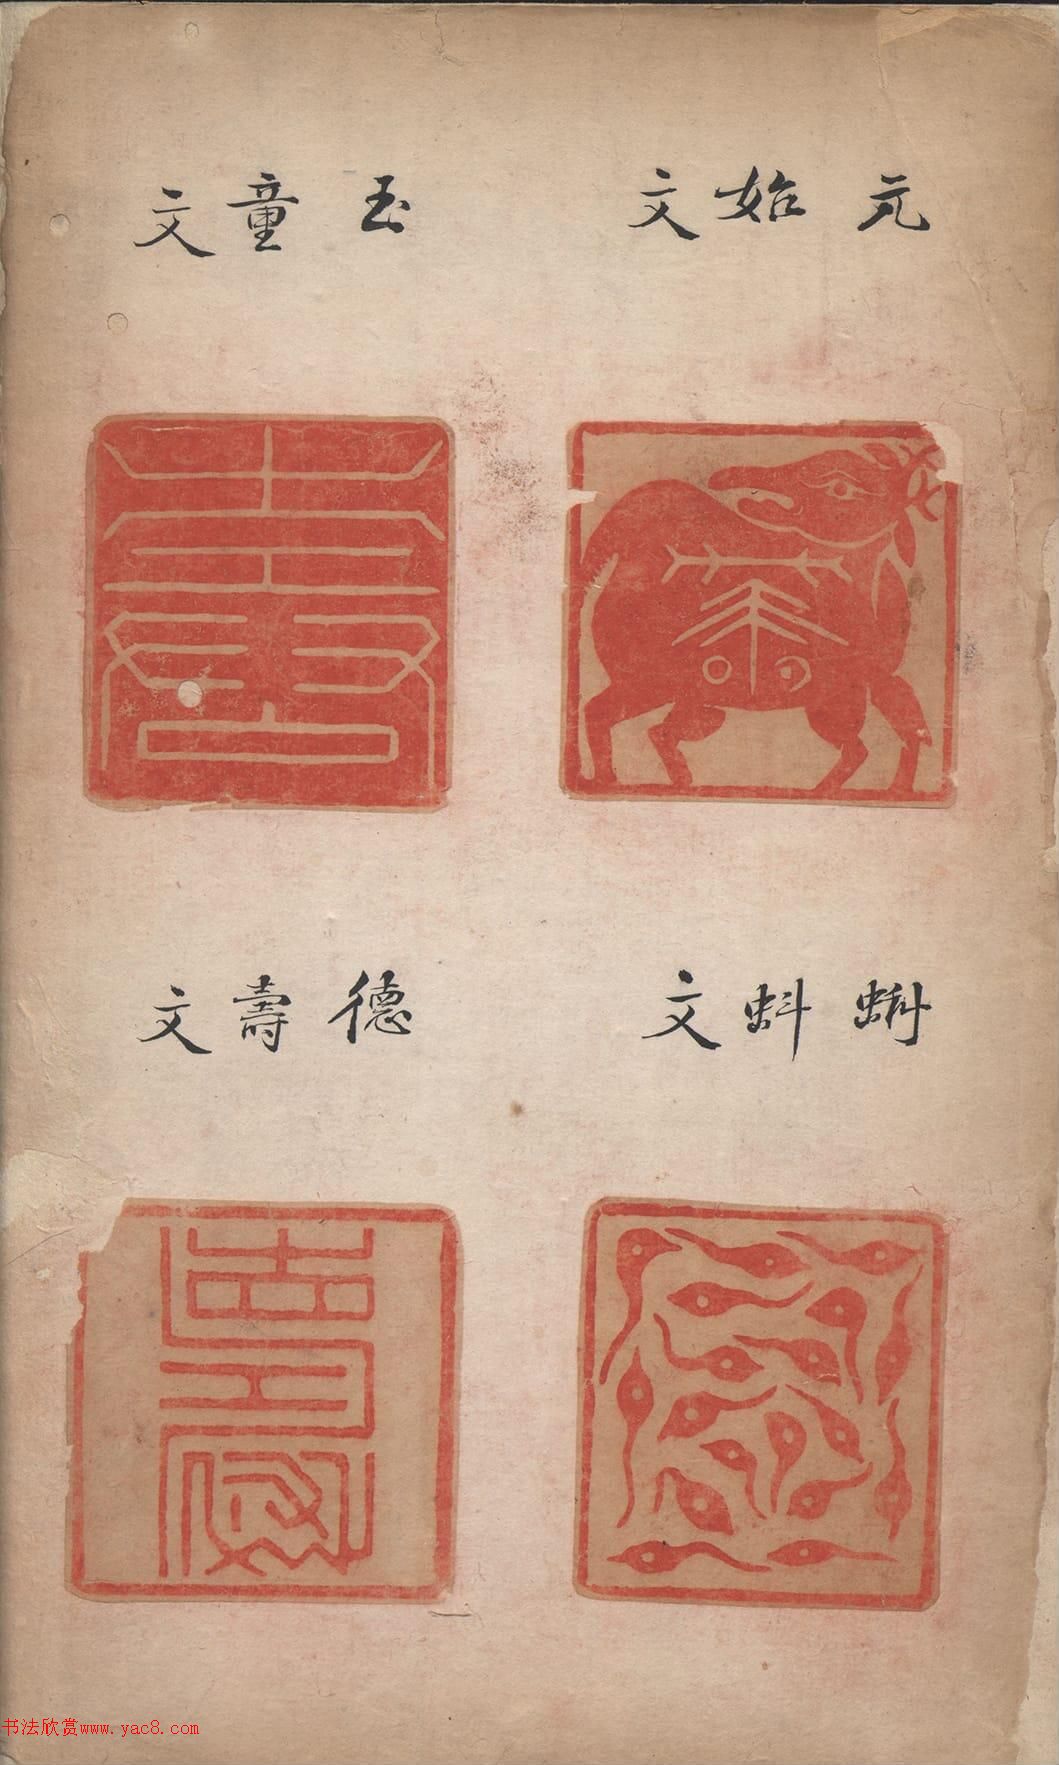 元始文
玉童文
蝌蚪文
德壽文
书法欣赏www.yac8.com